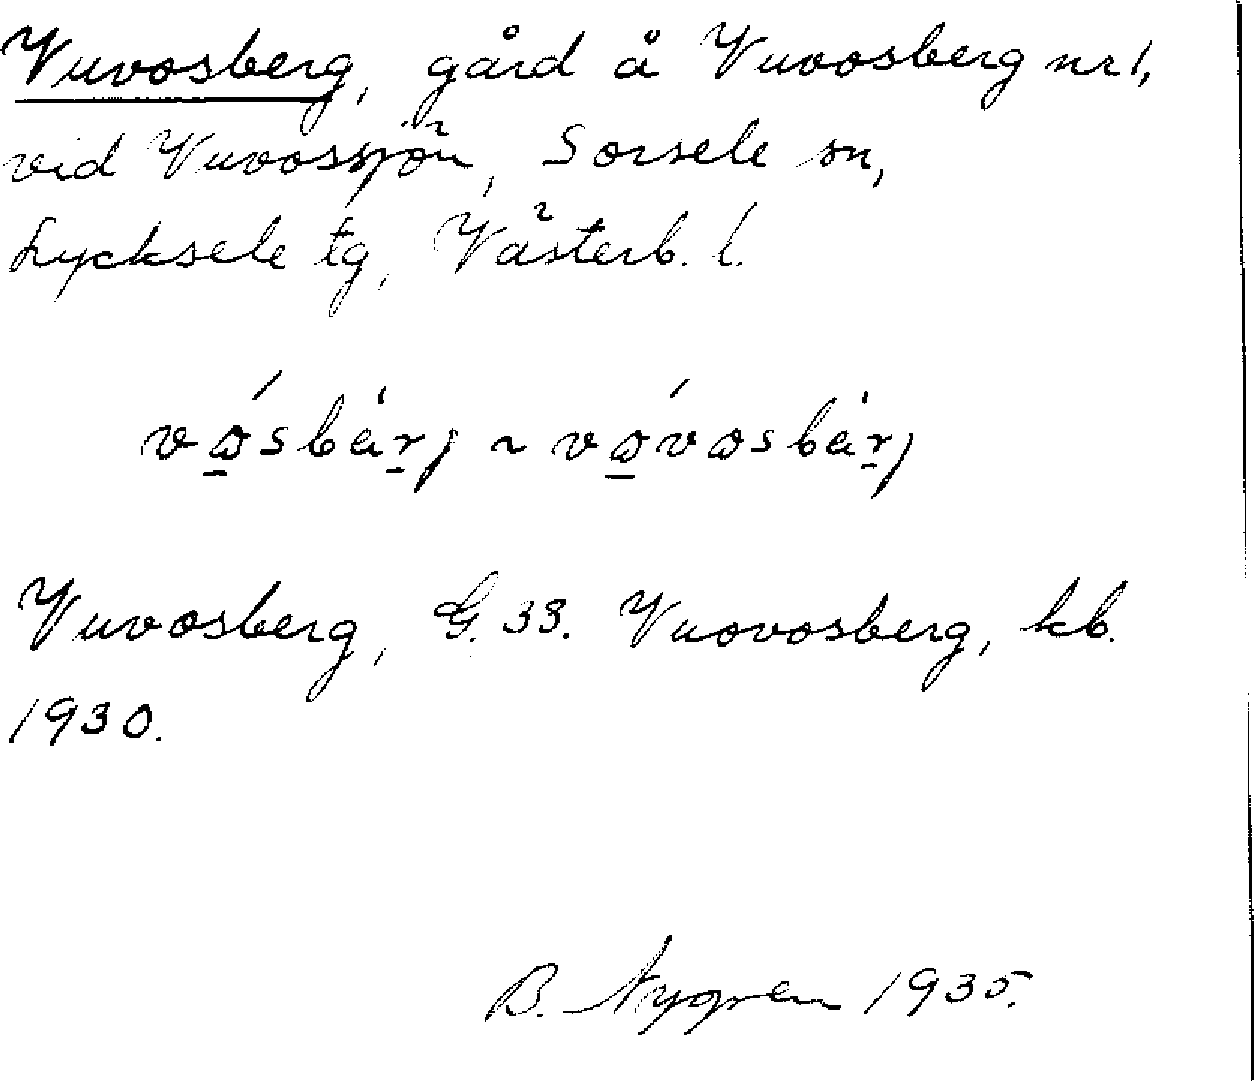 Vuvosberg, gård å Vuvosberg nr 1,
vid Vuvossjön, Sorsele sn,
Lycksele tg, Västerb. l.
Vuvosberg, G. 33. Vuovosberg, kb.
1930.
B. Nygren 1935.